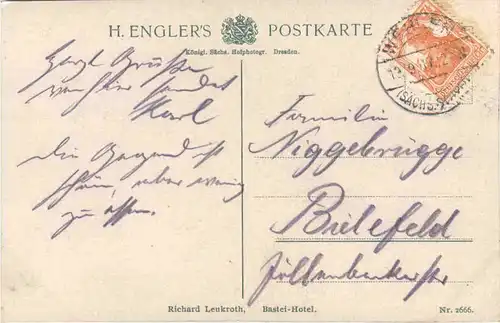 H. ENGLER'S POSTKARTE
Königl. Sächs. Hofphotogr. Dresden.
Herzl. Grüße
von hier sendet
Karl
Die Gegend ist
schön, aber wenig
zu essen.
Familie
Niggebrügge
Bielefeld
(SÄCHS.
Richard Leukroth, Bastei-Hotel. Nr. 2666.